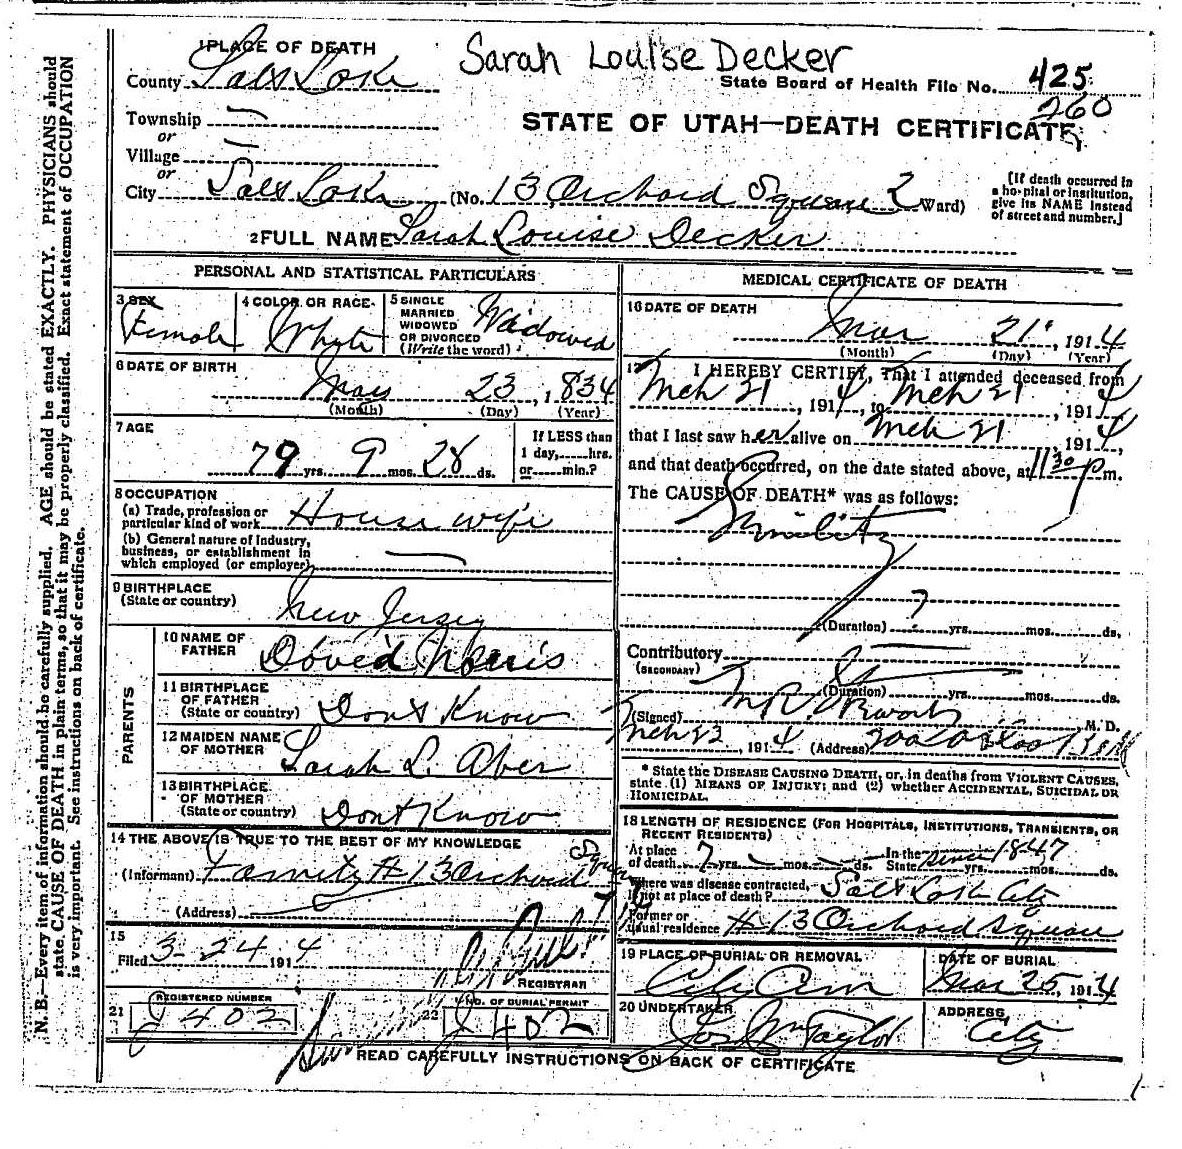 Sarah Louise Decker
1 PLACE OF DEATH
County Salt Lake
State Board of Health File No. 425
260
Township —
or
Village —
or
STATE OF UTAH—DEATH CERTIFICATE
City Salt Lake (No. 13 Orchard Square 2 Ward)
[If death occurred in a hospital or institution, give its NAME instead of street and number.]
2 FULL NAME Sarah Louise Decker
PERSONAL AND STATISTICAL PARTICULARS
3 SEX Female
4 COLOR OR RACE White
5 SINGLE MARRIED WIDOWED OR DIVORCED (Write the word) Widowed
6 DATE OF BIRTH
May 23, 1834
(Month) (Day) (Year)
7 AGE
79 yrs. 9 mos. 28 ds.
If LESS than 1 day,......hrs. or......min.?
8 OCCUPATION
(a) Trade, profession or particular kind of work House wife
(b) General nature of Industry, business, or establishment in which employed (or employer) —
9 BIRTHPLACE
(State or country) New Jersey
PARENTS
10 NAME OF FATHER David Norris
11 BIRTHPLACE OF FATHER (State or country) Dont Know
12 MAIDEN NAME OF MOTHER Sarah L. Aber
13 BIRTHPLACE OF MOTHER (State or country) Dont Know
14 THE ABOVE IS TRUE TO THE BEST OF MY KNOWLEDGE
(Informant) Family # 13 Orchard Square
(Address)
15
Filed 3-24 1914
REGISTRAR
21 REGISTERED NUMBER J 402
22 NO. OF BURIAL PERMIT J 402
MEDICAL CERTIFICATE OF DEATH
16 DATE OF DEATH
Mar 21, 1914
(Month) (Day) (Year)
17 I HEREBY CERTIFY, That I attended deceased from
Mch 21, 1914, to Mch 21, 1914
that I last saw her alive on Mch 21, 1914,
and that death occurred, on the date stated above, at 11 30 p m.
The CAUSE OF DEATH* was as follows:
(Duration) ? yrs. mos. ds.
Contributory
(SECONDARY)
(Duration) yrs. mos. ds.
(Signed) M. D.
Mch 22, 1914 (Address)
* State the DISEASE CAUSING DEATH, or, in deaths from VIOLENT CAUSES, state (1) MEANS OF INJURY; and (2) whether ACCIDENTAL, SUICIDAL OR HOMICIDAL.
18 LENGTH OF RESIDENCE (FOR HOSPITALS, INSTITUTIONS, TRANSIENTS, OR RECENT RESIDENTS)
At place of death 7 yrs. — mos. — ds. In the State since 1847 yrs. mos. ds.
Where was disease contracted, if not at place of death? Salt Lake City
Former or usual residence # 13 Orchard Square
19 PLACE OF BURIAL OR REMOVAL City Cem
DATE OF BURIAL Mar 25, 1914
20 UNDERTAKER Jos Wm Taylor
ADDRESS City
READ CAREFULLY INSTRUCTIONS ON BACK OF CERTIFICATE
N. B.—Every item of information should be carefully supplied. AGE should be stated EXACTLY. PHYSICIANS should
state CAUSE OF DEATH in plain terms, so that it may be properly classified. Exact statement of OCCUPATION
is very important. See instructions on back of certificate.